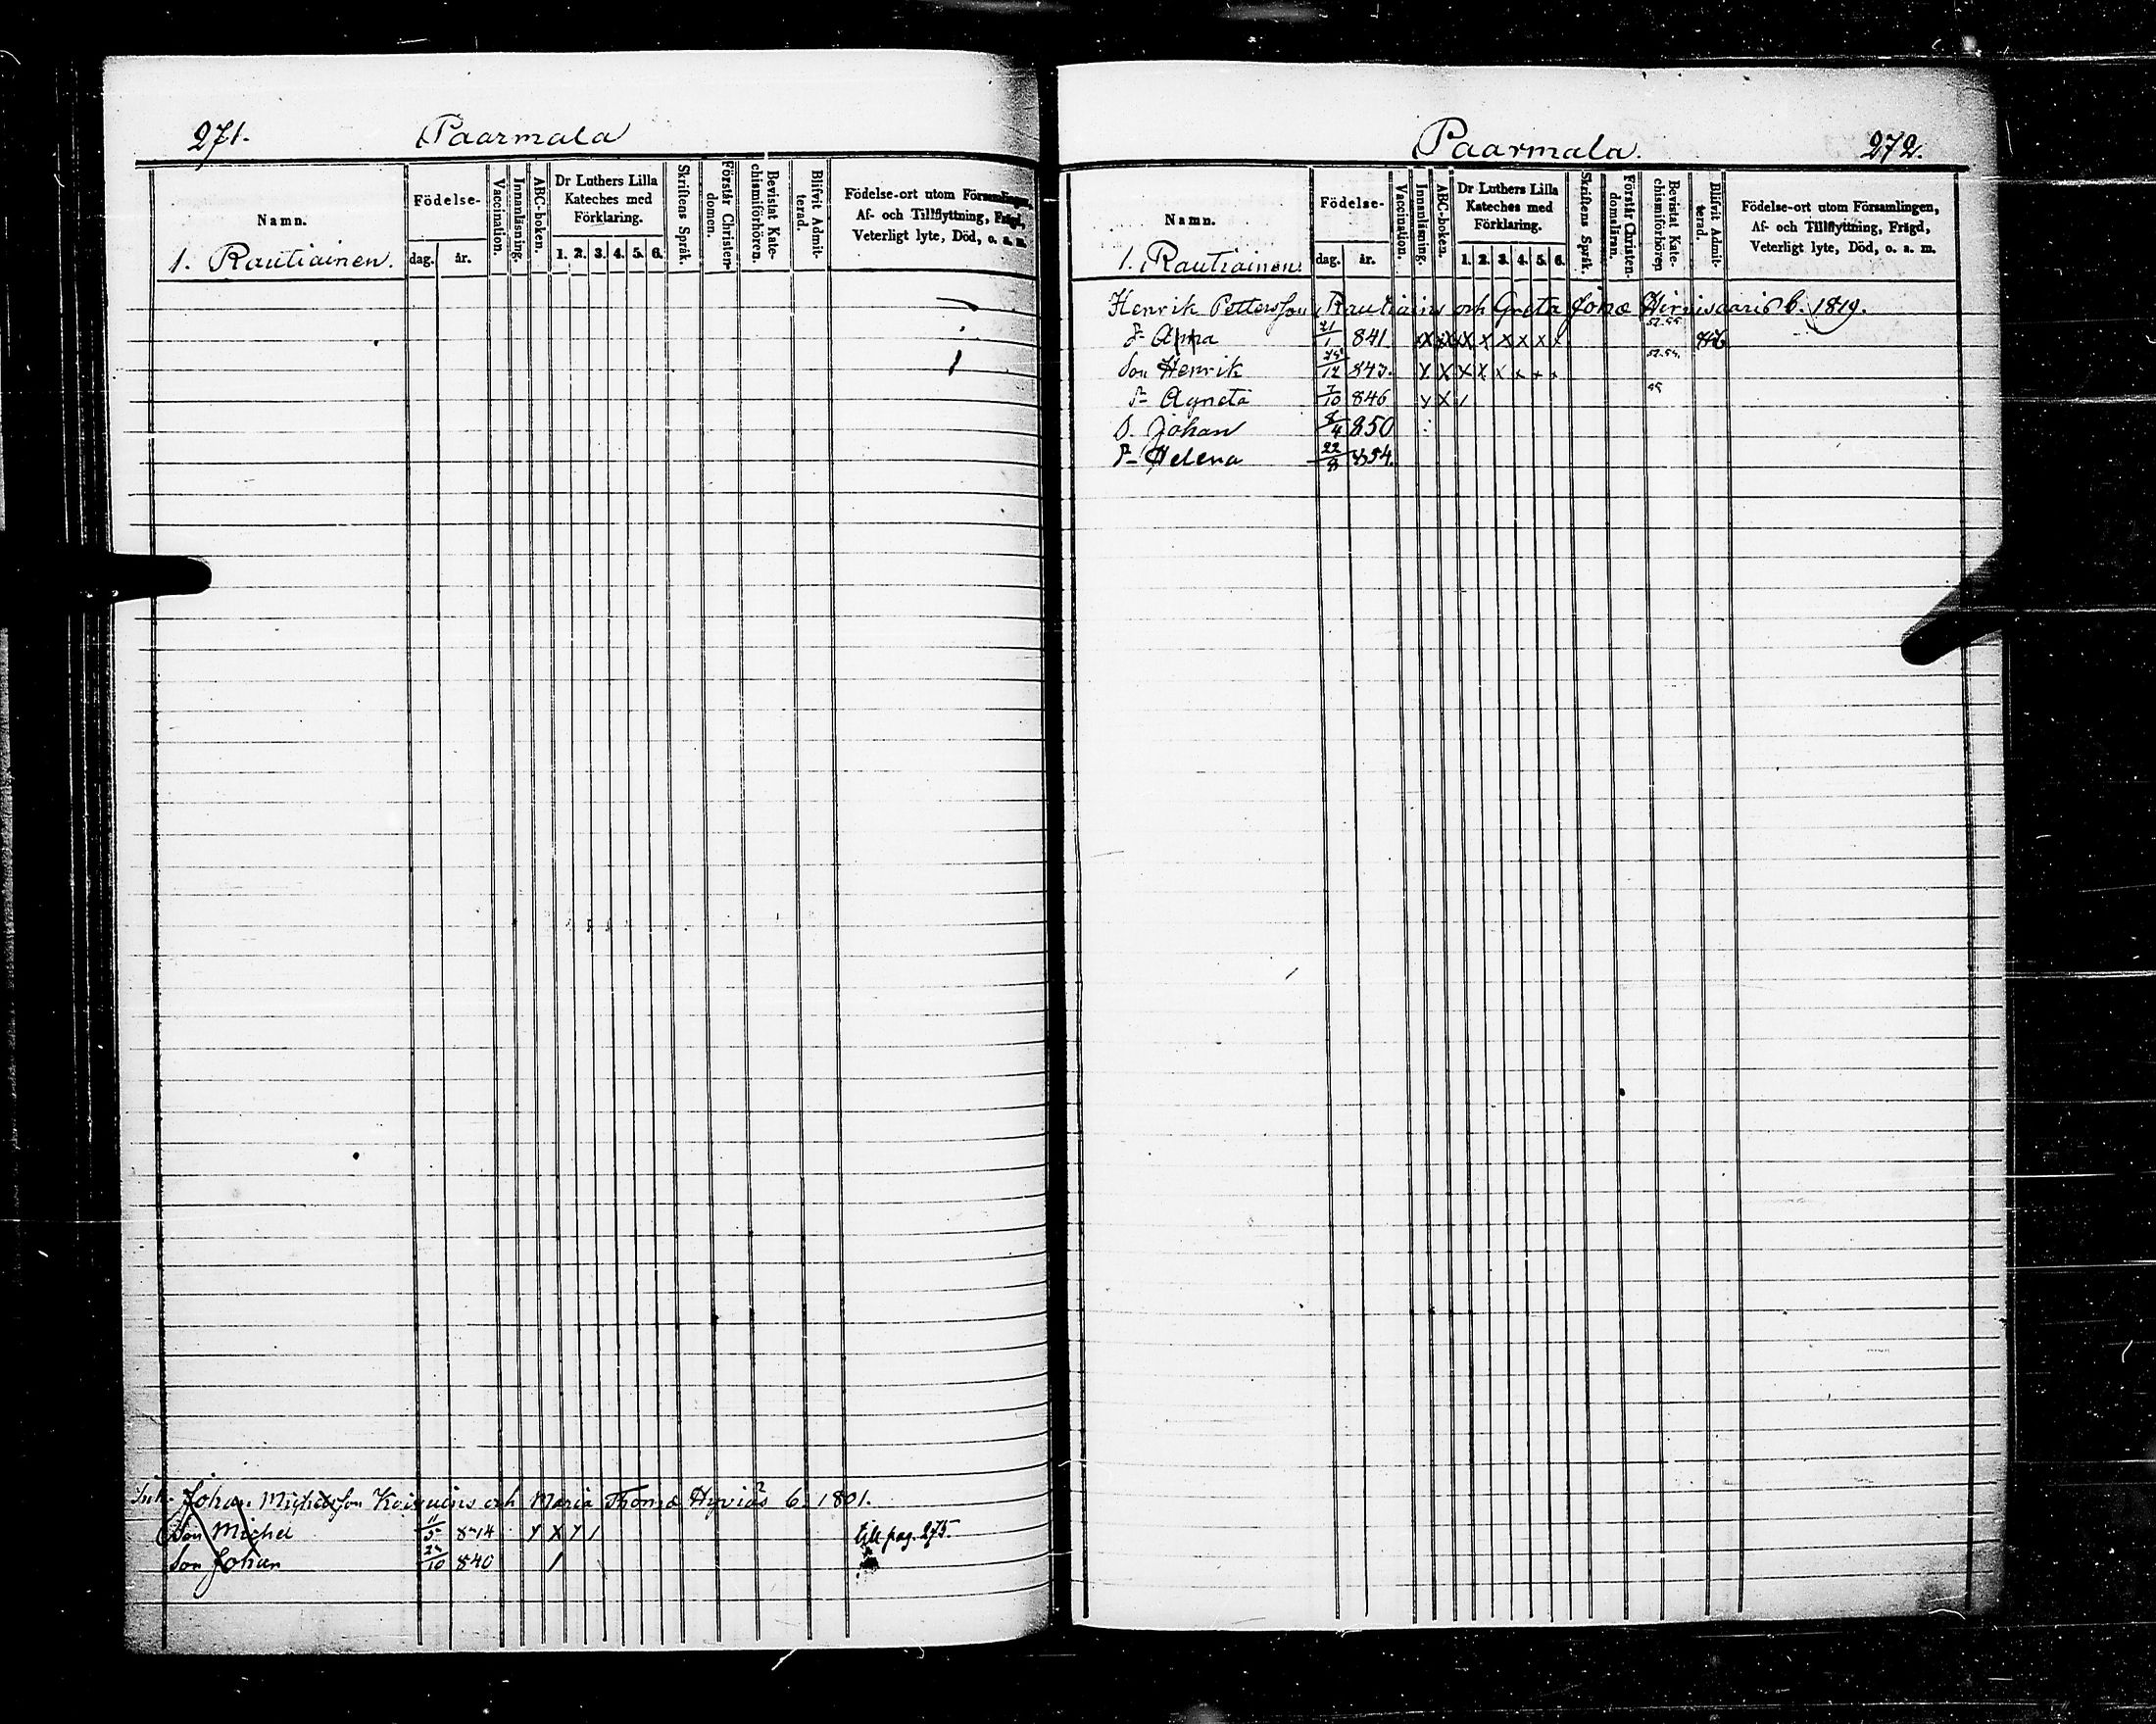 271. Paarmala
Namn. Födelse- Vaccination. Innanläsning. ABC-boken. Dr Luthers Lilla Kateches med Förklaring. Skriftens Språk. Förstår Christen-domen. Bevistat Kate-chismiförhören. Blifvit Admit-terad. Födelse-ort utom Församlingen, Af- och Tillflyttning, Frägd, Veterligt lyte, Död, o. a. m.
1. Rautiainen. dag. år. 1. 2. 3. 4. 5. 6.
Inh. Johan Michelsson och Maria Thomæ b. 1801.
Son Michel 11/5 814 till pag. 275.
Son Johan 840
Paarmala. 272.
Namn. Födelse- Vaccination. Innanläsning. ABC-boken. Dr Luthers Lilla Kateches med Förklaring. Skriftens Språk. Förstår Christen-domsläran. Bevistat Kate-chismiförhören Blifvit Admit-terad. Födelse-ort utom Församlingen, Af- och Tillflyttning, Frägd, Veterligt lyte, Död, o. a. m.
1. Rautiainen. dag. år. 1. 2. 3. 4. 5. 6.
Henrik Pettersson Rautiain och Greta Jonæ Hirvisaari b. 1819.
Anna 21/1 841 X X X X X X X X
Son Henrik 843. X X X X X X X X
Agneta 7/10 846 X X /
S. Johan 8/4 850
Helena 22/8 854.